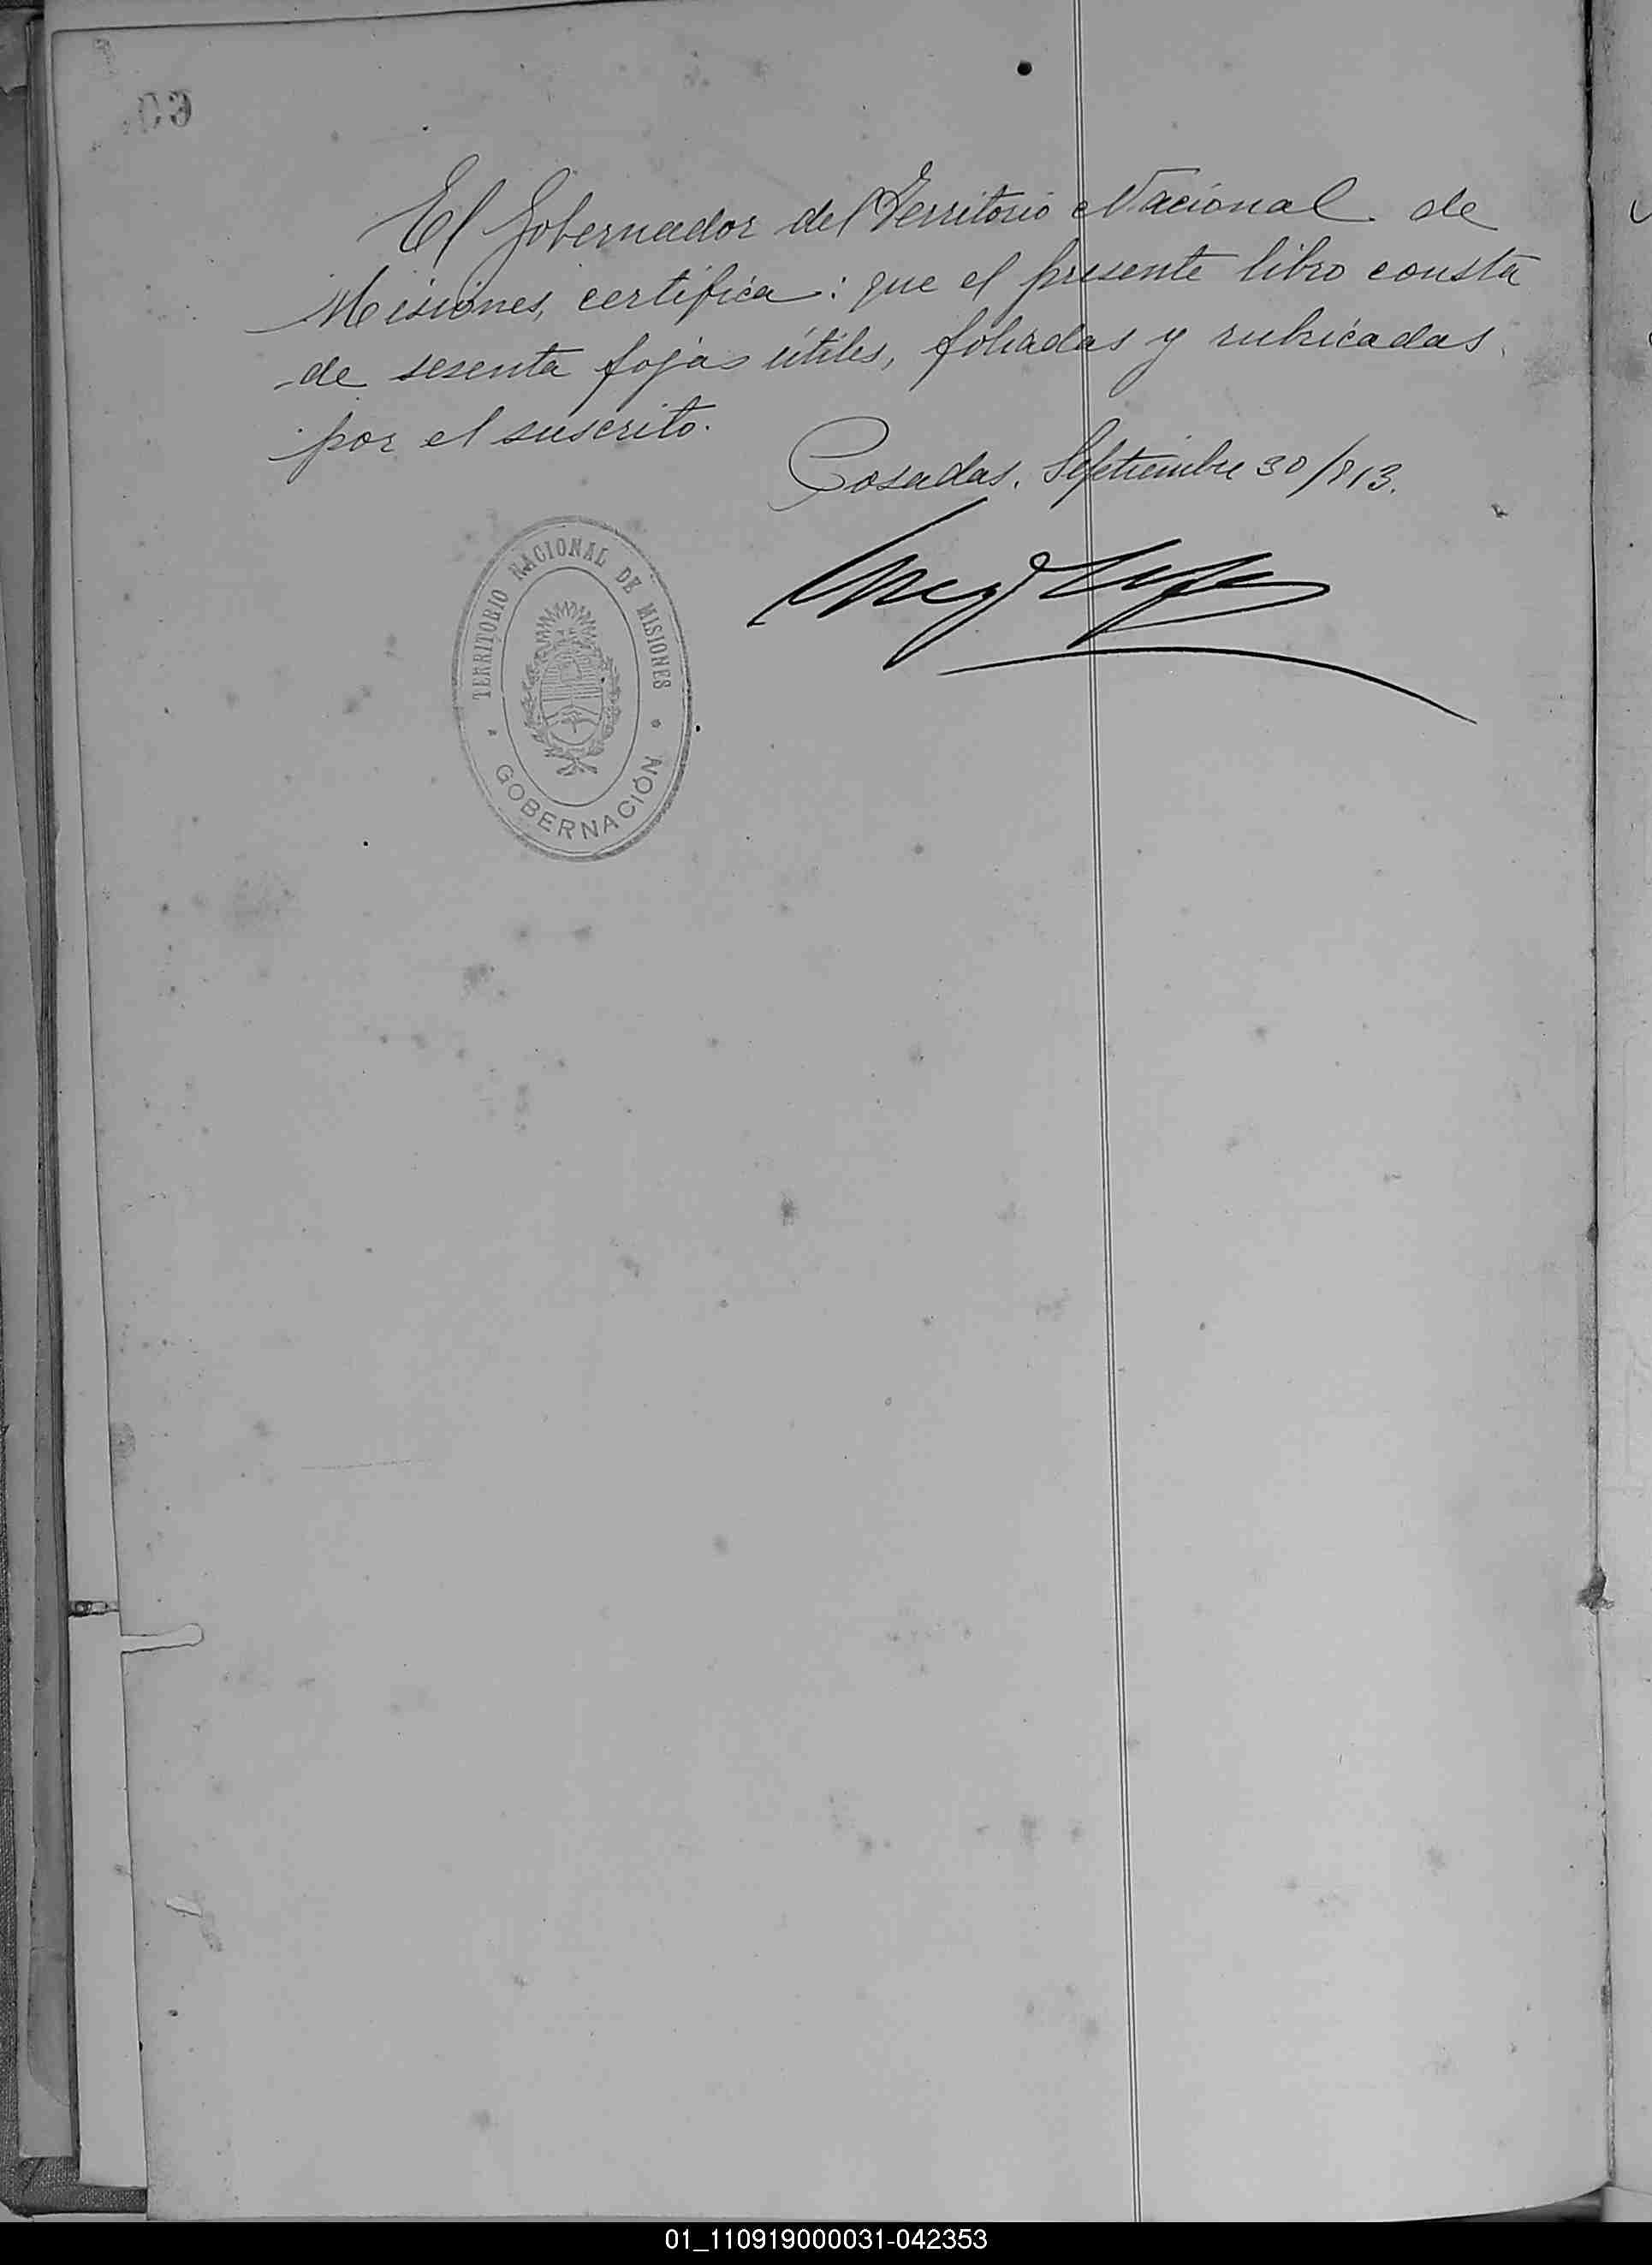 60
El Gobernador del Territorio Nacional de
Misiones, certifica: que el presente libro consta
de sesenta fojas útiles, foliadas y rubricadas
por el suscrito.
Posadas, Septiembre 30/913.
TERRITORIO NACIONAL DE MISIONES
GOBERNACIÓN
01_110919000031-042353